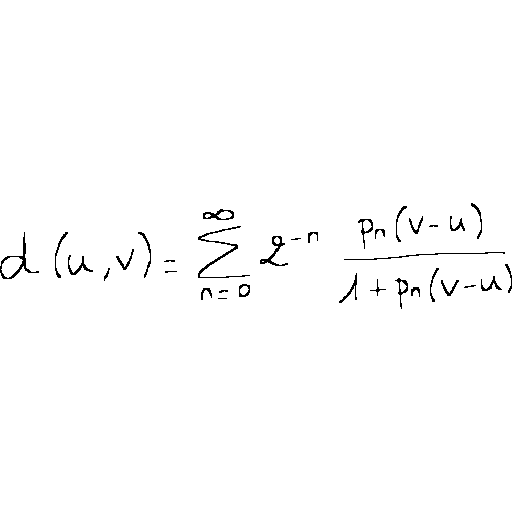 d(u,v) = \sum_{n=0}^{\infty} 2^{-n} \frac{p_n(v-u)}{1+p_n(v-u)}